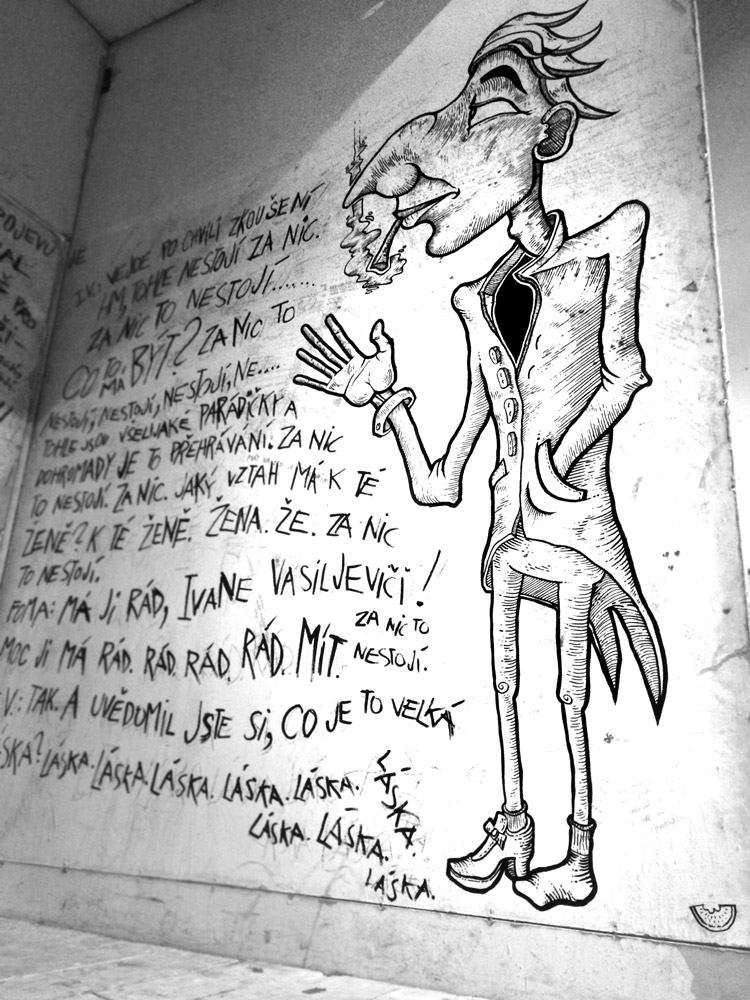 ODJEVU
AL
Ž
PRO
I.V.: VEJDE PO CHVÍLI ZKOUŠENÍ
HM, TOHLE NESTOJÍ ZA NIC.
ZA NIC TO NESTOJÍ.......
CO TO MÁ BÝT? ZA NIC TO
NESTOJÍ, NESTOJÍ, NESTOJÍ, NE....
TOHLE JSOU VŠELIJAKÉ PARÁDIČKY A
DOHROMADY JE TO PŘEHRÁVÁNÍ. ZA NIC
TO NESTOJÍ. ZA NIC. JAKÝ VZTAH MÁ K TÉ
ŽENĚ? K TÉ ŽENĚ. ŽENA. ŽE. ZA NIC
TO NESTOJÍ.
FOMA: MÁ JI RÁD, IVANE VASILJEVIČI!
MOC JI MÁ RÁD. RÁD. RÁD. RÁD. MÍT. ZA NIC TO NESTOJÍ.
V.: TAK. A UVĚDOMIL JSTE SI, CO JE TO VELKÁ
ÁSKA? LÁSKA. LÁSKA. LÁSKA. LÁSKA. LÁSKA. LÁSKA.
LÁSKA. LÁSKA.
LÁSKA.